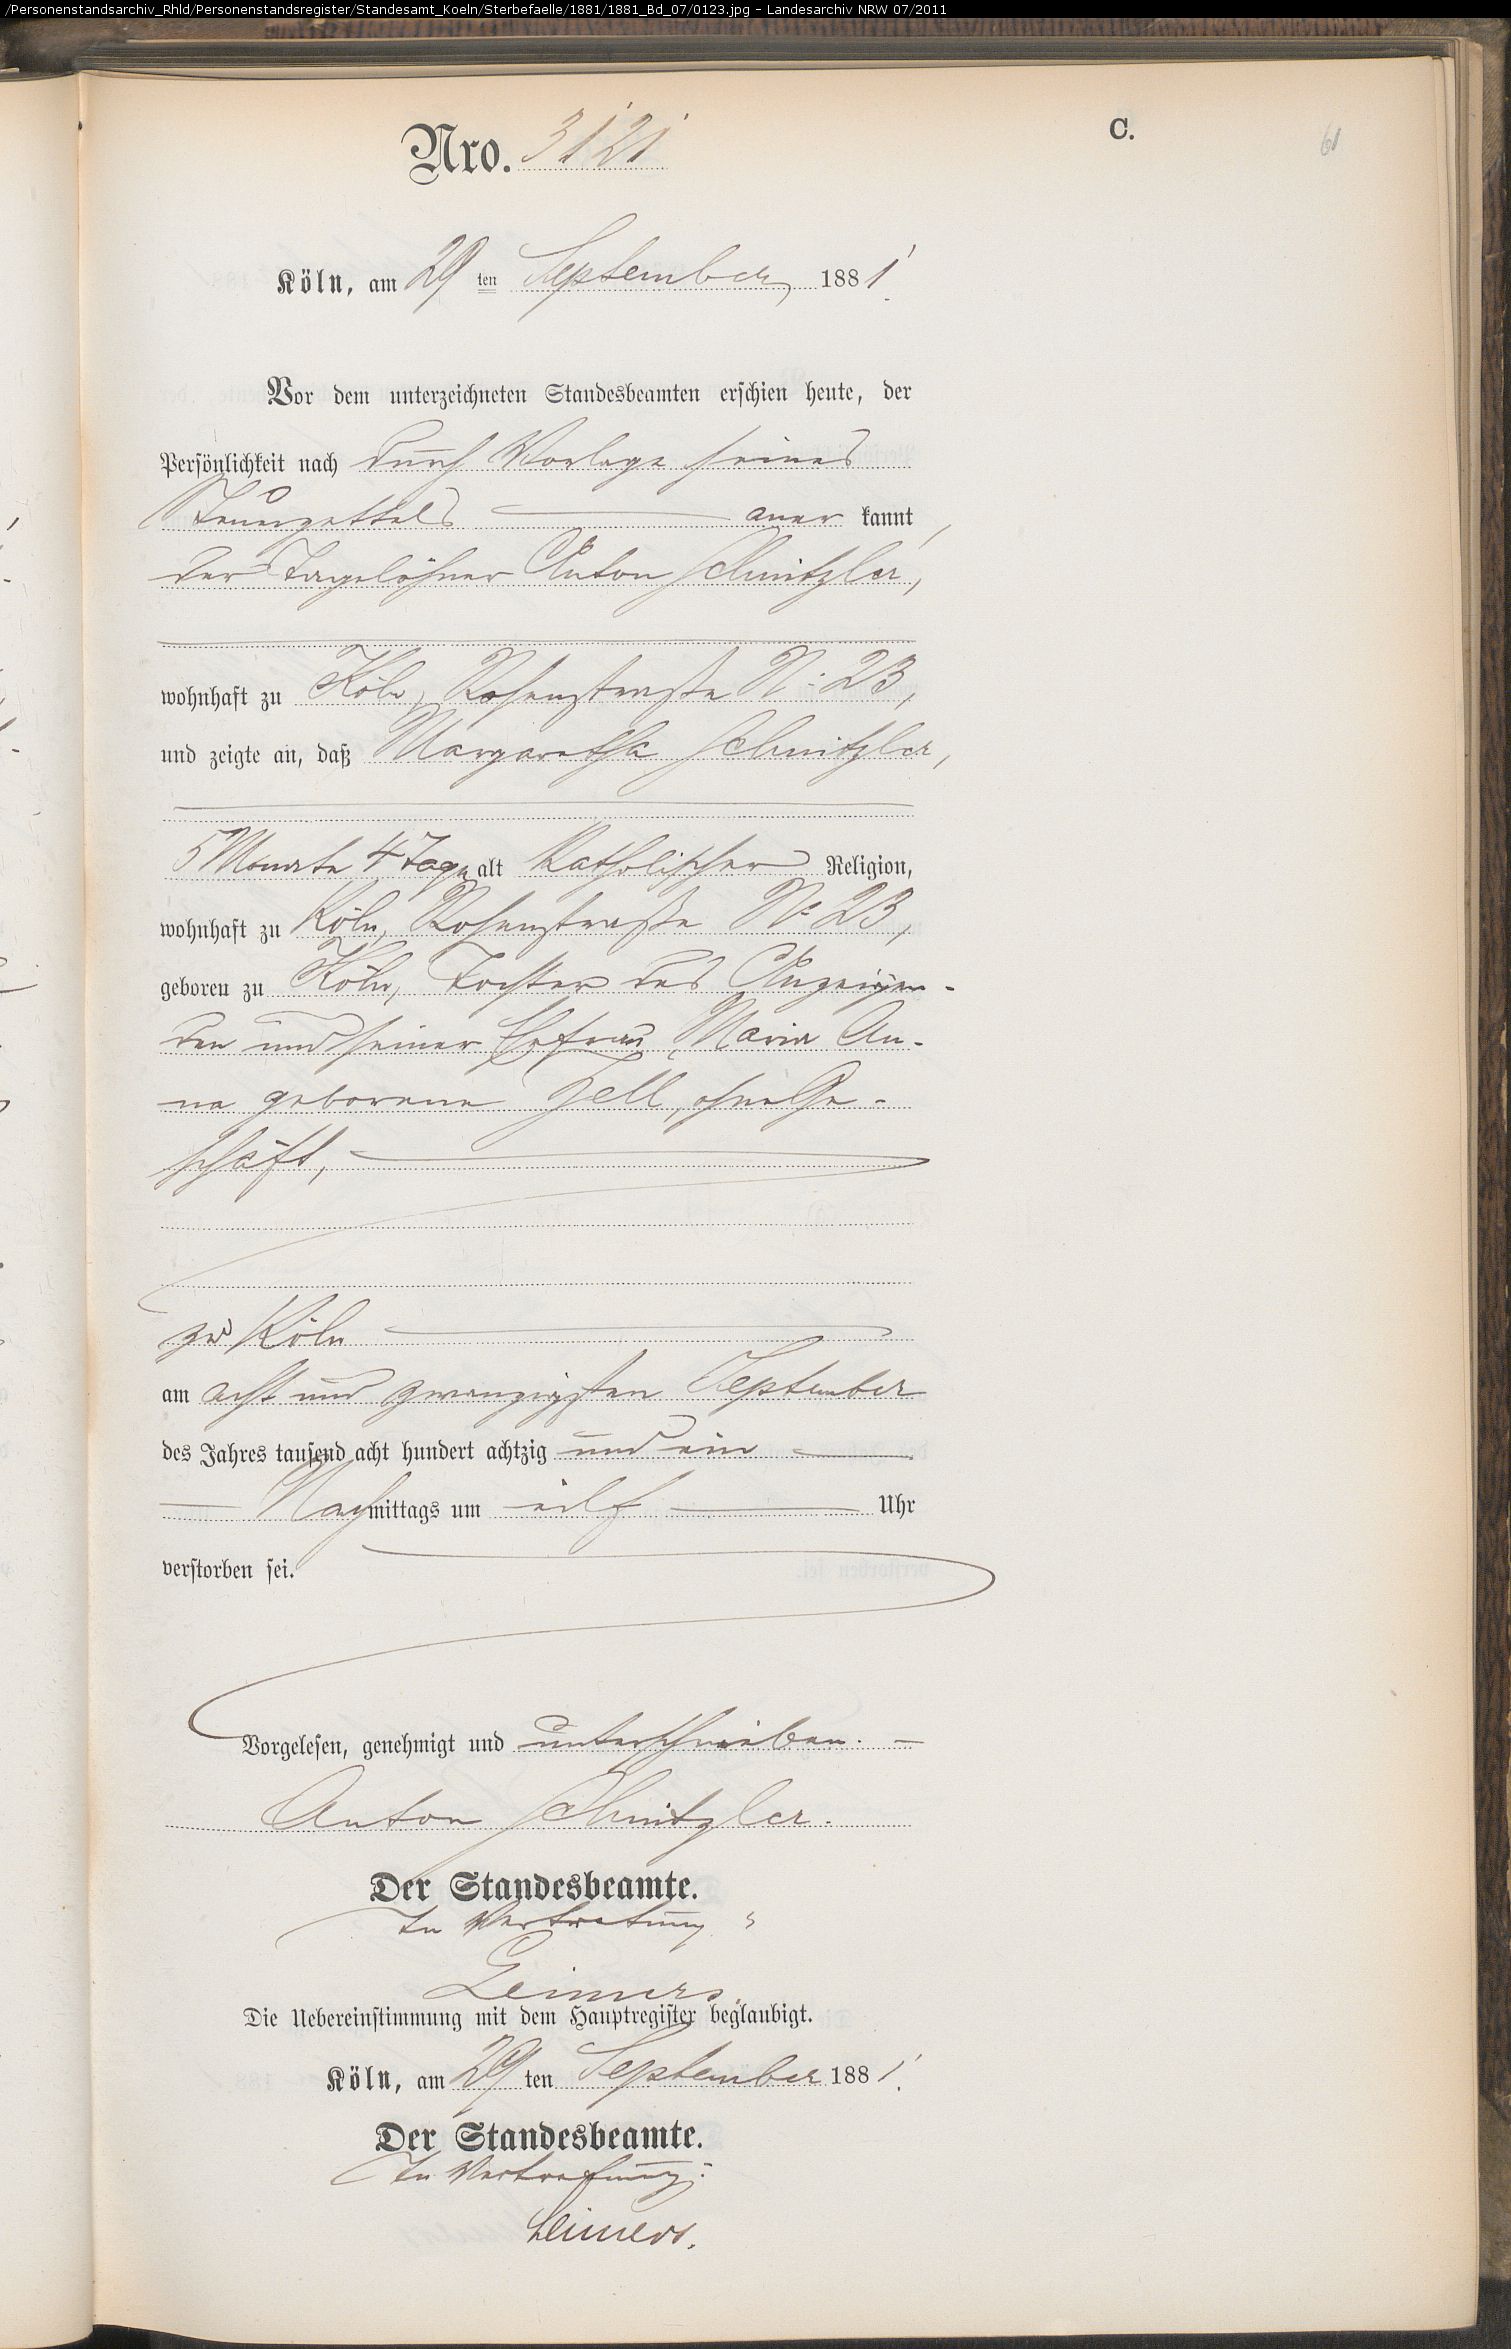 /Personenstandsarchiv_Rhld/Personenstandsregister/Standesamt_Koeln/Sterbefaelle/1881/1881_Bd_07/0123.jpg - Landesarchiv NRW 07/2011
C.
61
Nro. 3121
Köln, am 29 ten September 1881.
Vor dem unterzeichneten Standesbeamten erschien heute, der
Persönlichkeit nach durch Vorlage seines
Steuerzettels aner kannt,
der Tagelöhner Anton Schnitzler,
wohnhaft zu Köln, Rosenstraße N: 23,
und zeigte an, daß Margaretha Schnitzler,
5 Monate 4 Tage alt katholischer Religion,
wohnhaft zu Köln, Rosenstraße No 23,
geboren zu Köln, Tochter des Anzeigen-
den und seiner Ehefrau Maria An-
na geborene Zell, ohne Ge-
schäft,
zu Köln
am acht und zwanzigsten September
des Jahres tausend acht hundert achtzig und ein
Nachmittags um eilf Uhr
verstorben sei.
Vorgelesen, genehmigt und unterschrieben.
Anton Schnitzler.
Der Standesbeamte.
In Vertretung
Leimers.
Die Uebereinstimmung mit dem Hauptregister beglaubigt.
Köln, am 29 ten September 1881.
Der Standesbeamte.
In Vertretung:
Leimers.